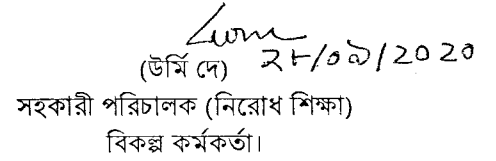 (উর্মি দে) ২৮/০৯/২০২০
সহকারী পরিচালক (নিরোধ শিক্ষা)
বিকল্প কর্মকর্তা।